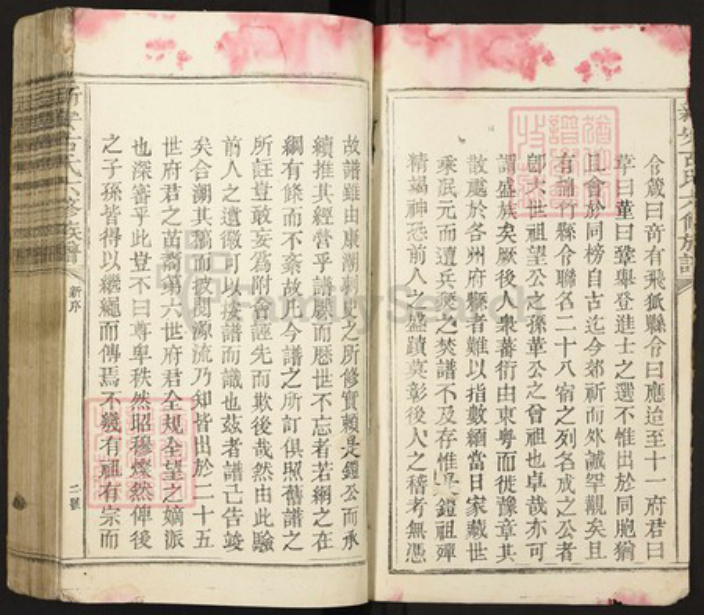 令箴曰奇有飛狐縣令曰應迨至十一府君曰
革曰董曰鞏舉登進士之選不惟出於同胞猶
且會於同榜自古迄今郊祈而外誠罕覯矣且
有綿竹縣令聯名二十八宿之列名成之公者
卽大世祖望公之孫華公之曾祖也卓哉亦可
謂盛族矣厥後人衆蕃衍由東粤而徙豫章其
散處於各州府縣者難以指數緬當日家藏世
乘泯元而遭兵燹之焚譜不及存惟 鐘祖殫
精竭神恐前人之盛蹟莫彰後人之稽考無憑
故譜雖由康潮刺史之所修實賴是鐘公而承
續推其經營乎譜牒而歷世不忘者若網之在
綱有條而不紊故凡今譜之所訂俱照舊譜之
所註豈敢妄爲附會誣先而欺後哉然由此騐
前人之遺徽可以接譜而識也茲者譜已告竣
矣合潮其稿而披閱源流乃知皆出於二十五
世府君之苗裔第六世府君全規全望之嫡派
也深審乎此豈不曰尊卑秩然昭穆燦然俾後
之子孫皆得以繼繩而傳焉不幾有祖有宗而
新安古氏六修族譜
新序
二號
FamilySearch